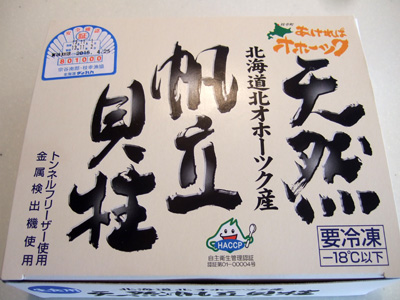 あければ
オホーツク
天然
北海道北オホーツク産
帆立
貝柱
トンネルフリーザー使用
金属検出機使用
801000
HACCP
自主衛生管理認証
認証第01-00004号
要冷凍
-18℃以下